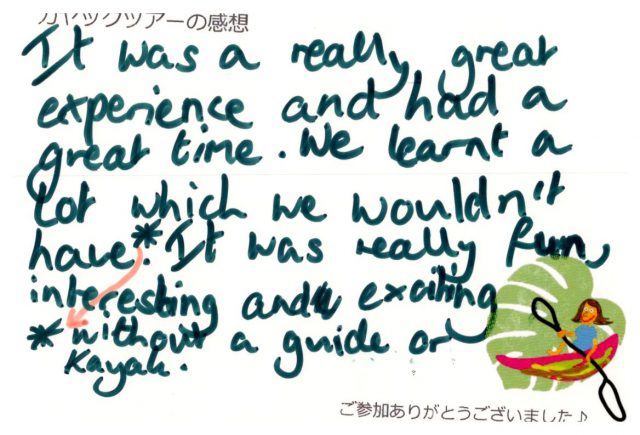 カヤックツアーの感想
It was a really great
experience and had a
great time. We learnt a
lot which we wouldn't
have*. It was really fun,
interesting and exciting
* without a guide or
Kayak.
ご参加ありがとうございました♪